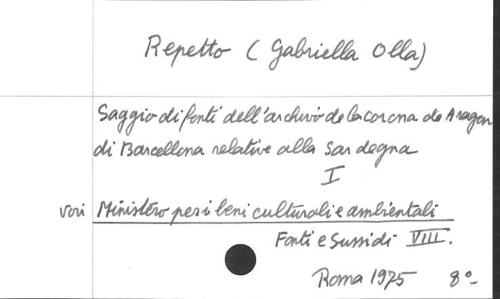 Repetto (Gabriella Olla)
Saggio di fonti dell'archivio de la corona de Aragon
di Barcellona relative alla Sardegna
I
voir Ministéro per i beni culturali e ambientali
Fonti e Sussidi VIII.
Roma 1975 8°-